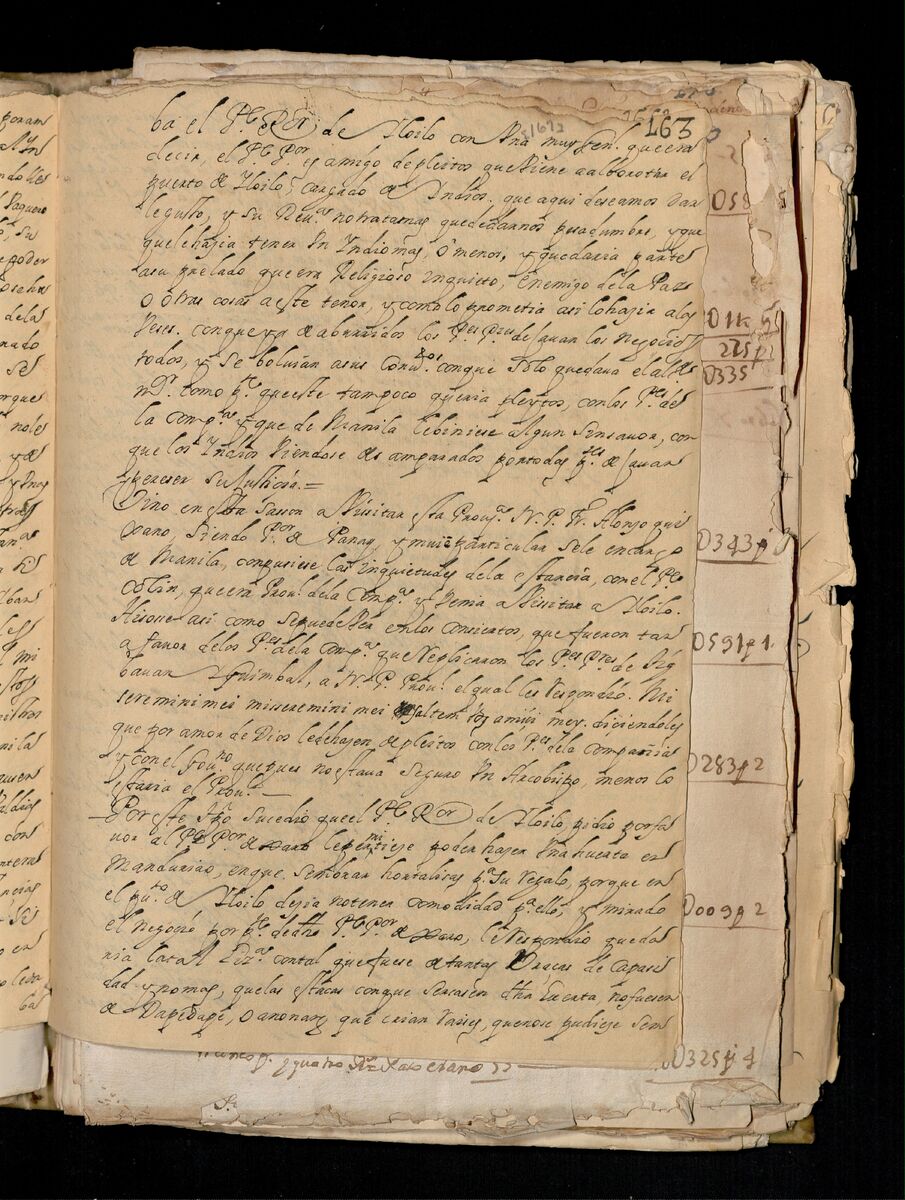 163
ba el Pe. Ror. de Yloilo con Vna muy sen. que era
decir, el Pe. Por. es amigo de pleitos que Viene a alborotar el
puerto de Yloilo, cargado de Indios, que aqui deseamos dar
le gusto, y su Reua. no tratamas que de darnos pesadumbre, y que
que le hazia tener Vn Indio mas, ô menos, y que daria parte
a su prelado que era Religioso inquieto, Enemigo de la Paz
o otras cosas a este tenor, y como lo prometia asi lo hazia a las
Veses. con que ya de aburridos los Pes. Pres. dejauan los Negocios
todos, y Se boluian a sus Conuos. con que Solo quedaua el alde.
mr. como pte. que este tampoco queria pleytos, con los Pes. de
la Compa. y que de Manila le biniese algun Sinsauor, con
que los Indios Viendose desamparados por todas ptes. dejauan
perecer su Justicia. =
Vino en esta Sasson a Vissitar esta Proua. N. P. Fr. Alonso qui
xano, Siendo Por. de Panay, y mui particular Se le encargo
de Manila, compusiese las inquietudes de la estancia, con el Pe.
Colin, que era Proul. de la Compa. y Venia a Vissitar a Yloilo.
Hisose asi como Se puede Ver en los consiertos, que fueron tan
a fauor de los Pes. de la Compa. que Replicaron los Pes. Pres. de Sig
bauan y Guimbal, a N. P. Proul. el qual les Respondio. Mi
seremini mei misseremini mei saltem vos amici mey. diciendoles
que por amor de Dios le dexasen, de pleitos con los Pes. de la Compañia
y con el Gouno. que pues no estaua seguro Vn Arcobispo, menos lo
estaria el Proul. —
Por este tpo. Sucedio que el Pe. Ror. de Yloilo, pidio por fa
uor al Pe. Por. de xaro le permitiese poder hazer Vna huerta en
Manduriao, en que Sembrar hortalisas pa. Su Regalo, porque en
el puto. de Yloilo desia no tener comodidad pa. ello, y mirado
el negocio por pte. de dho. Pe. Por. de xaro, le Respondio que da
ria la tal liza. con tal que fuese de tantas Brasas de capasi
dad, y no mas, que las estacas con que Sercasen dha. huerta no fuesen
de Dapdape, o anonang que crian raises, que no se pudiese Sem
0343p
0591p1.
0283p2
0009p2
00325p4